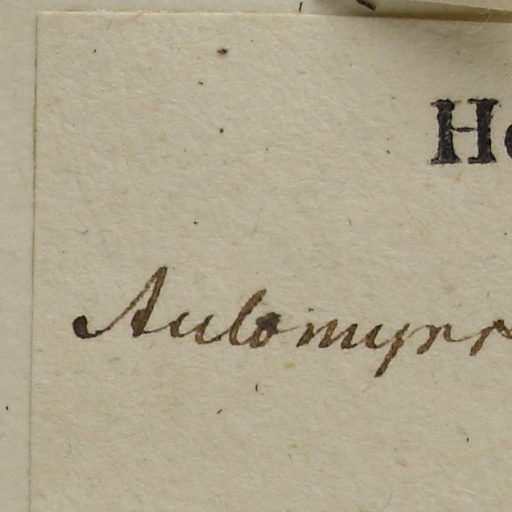 He
Aulomyrr